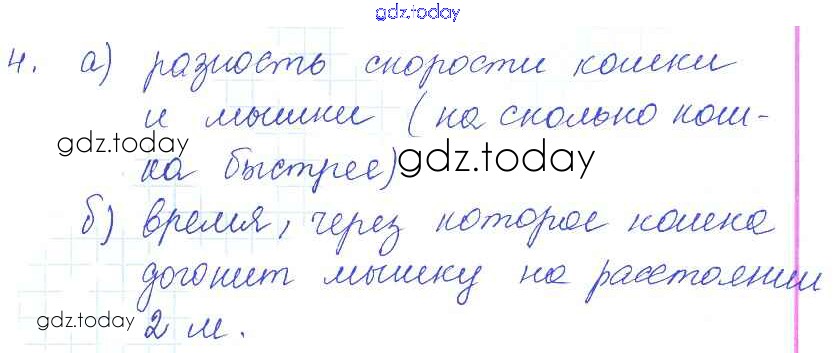 gdz.today
4. а) разность скорости кошки
и мышки (на сколько кош-
gdz.today
ка быстрее) gdz.today
б) время, через которое кошка
догонит мышку на расстоянии
gdz.today 2 м.